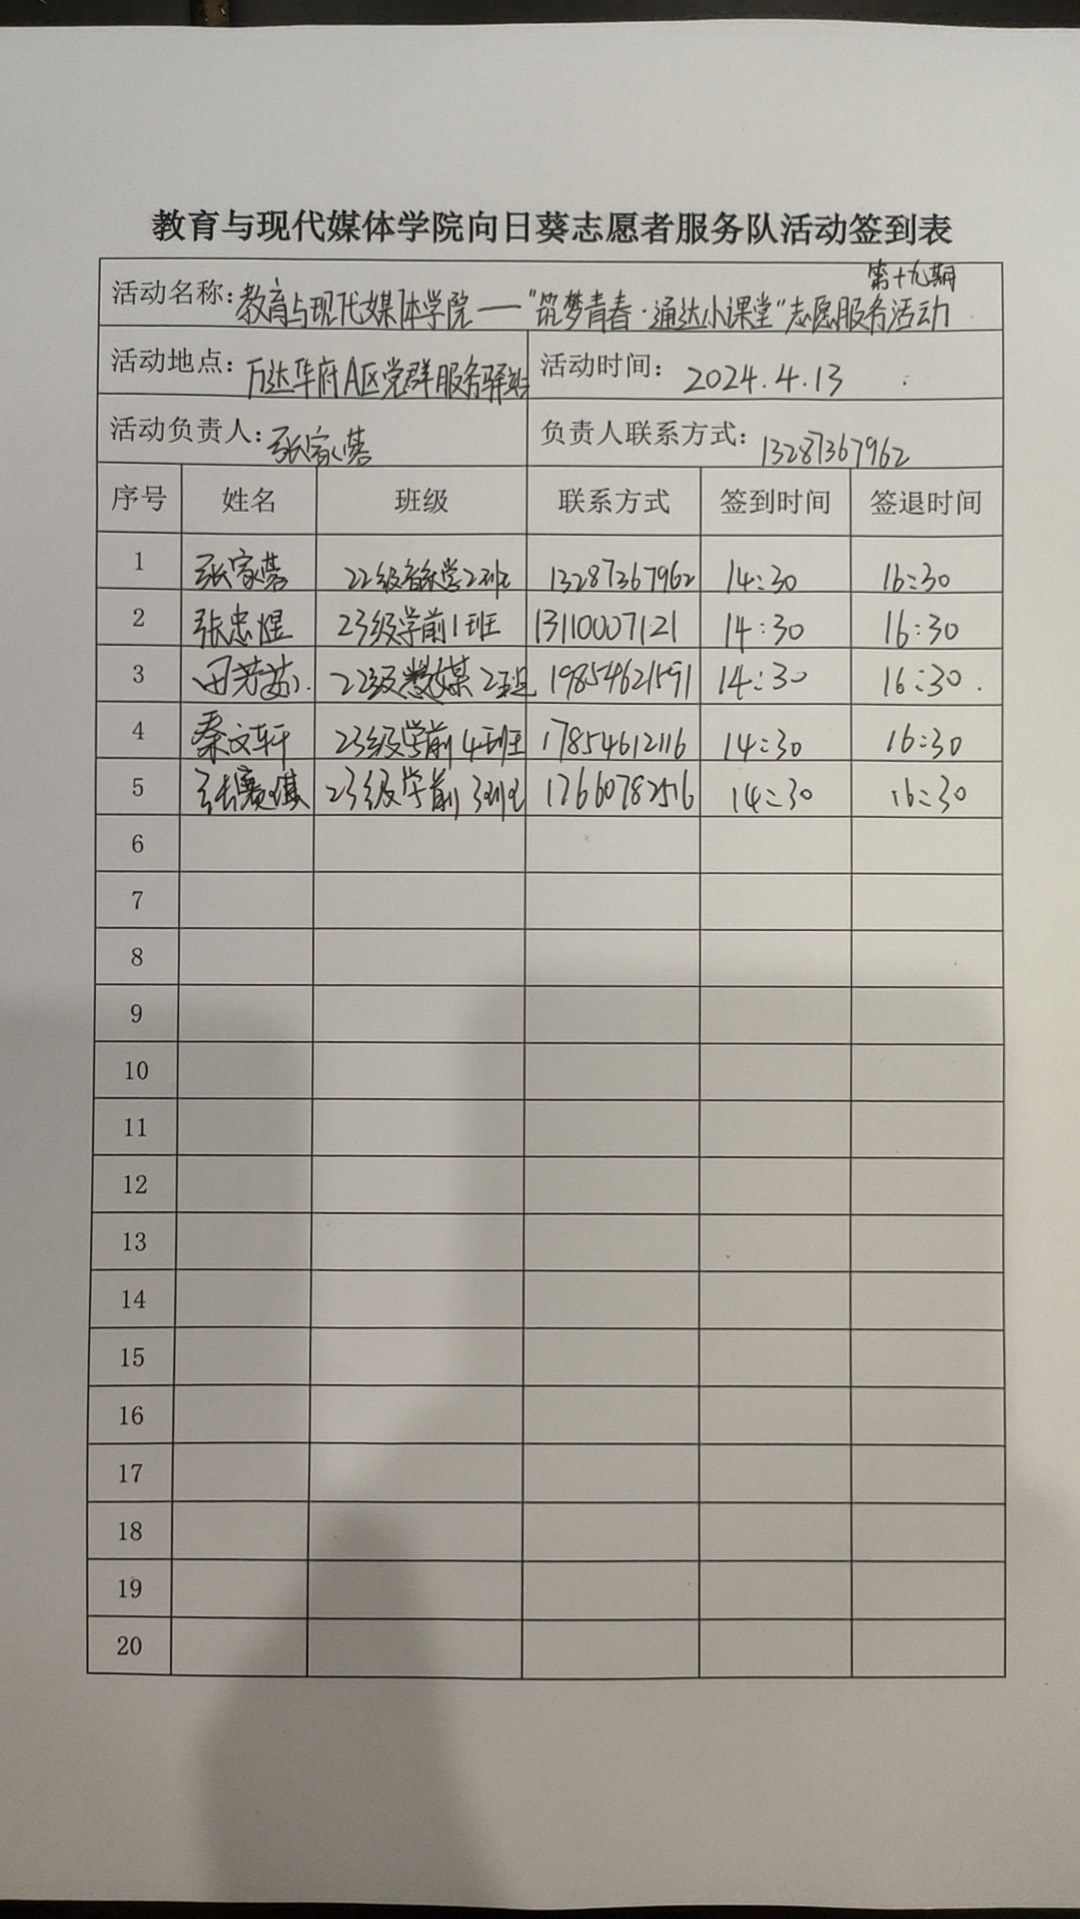 教育与现代媒体学院向日葵志愿者服务队活动签到表
第十九期
活动名称:教育与现代媒体学院——"筑梦青春·通达小课堂"志愿服务活动
活动地点:万达华府A区党群服务驿站 活动时间: 2024.4.13
活动负责人:张家蓉 负责人联系方式: 13287367962
序号 姓名 班级 联系方式 签到时间 签退时间
1 张家蓉 22级音乐学2班 13287367962 14:30 16:30
2 张忠煜 23级学前1班 13110007121 14:30 16:30
3 田芳茹 22级数媒2班 19854621591 14:30 16:30
4 秦文轩 23级学前4班 17854612116 14:30 16:30
5 张赛琪 23级学前3班 17660782516 14:30 16:30
6
7
8
9
10
11
12
13
14
15
16
17
18
19
20